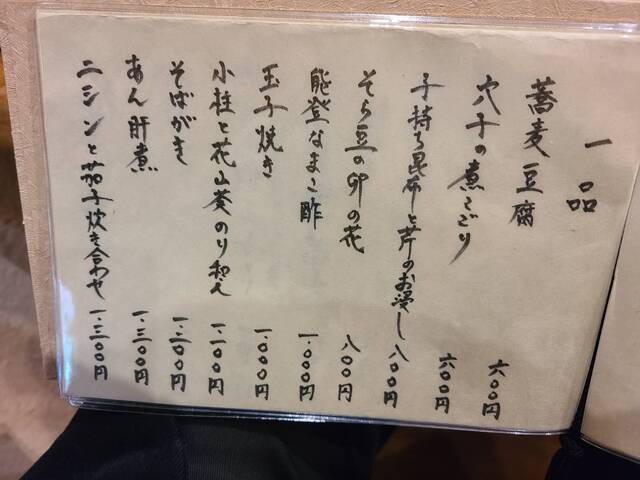 一品
蕎麦豆腐 六〇〇円
穴子の煮こごり 六〇〇円
子持ち昆布と芹のお浸し 八〇〇円
そら豆の卯の花 八〇〇円
能登なまこ酢 一、〇〇〇円
玉子焼き 一、〇〇〇円
小柱と花山葵のり和え 一、二〇〇円
そばがき 一、三〇〇円
あん肝煮 一、三〇〇円
ニシンと茄子炊き合わせ 一、三〇〇円